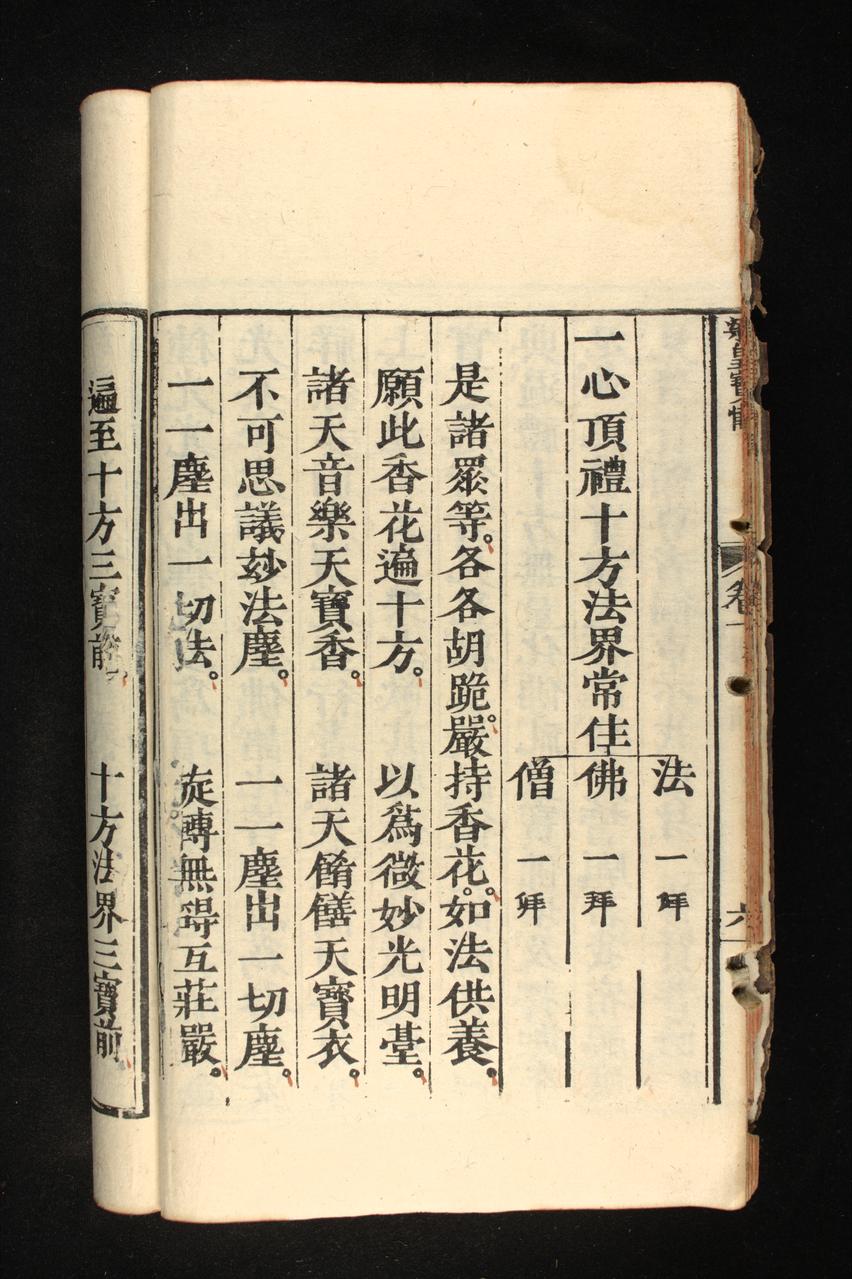 法 一拜
一心頂禮十方法界常住佛 一拜
僧 一拜
是諸眾等。各各胡跪。嚴持香花。如法供養。
願此香花遍十方。 以爲微妙光明臺。
諸天音樂天寶香。 諸天餚饍天寶衣。
不可思議妙法塵。 一一塵出一切塵。
一一塵出一切法。 旋轉無碍互莊嚴。
遍至十方三寶前。 十方法界三寶前
卷一
六